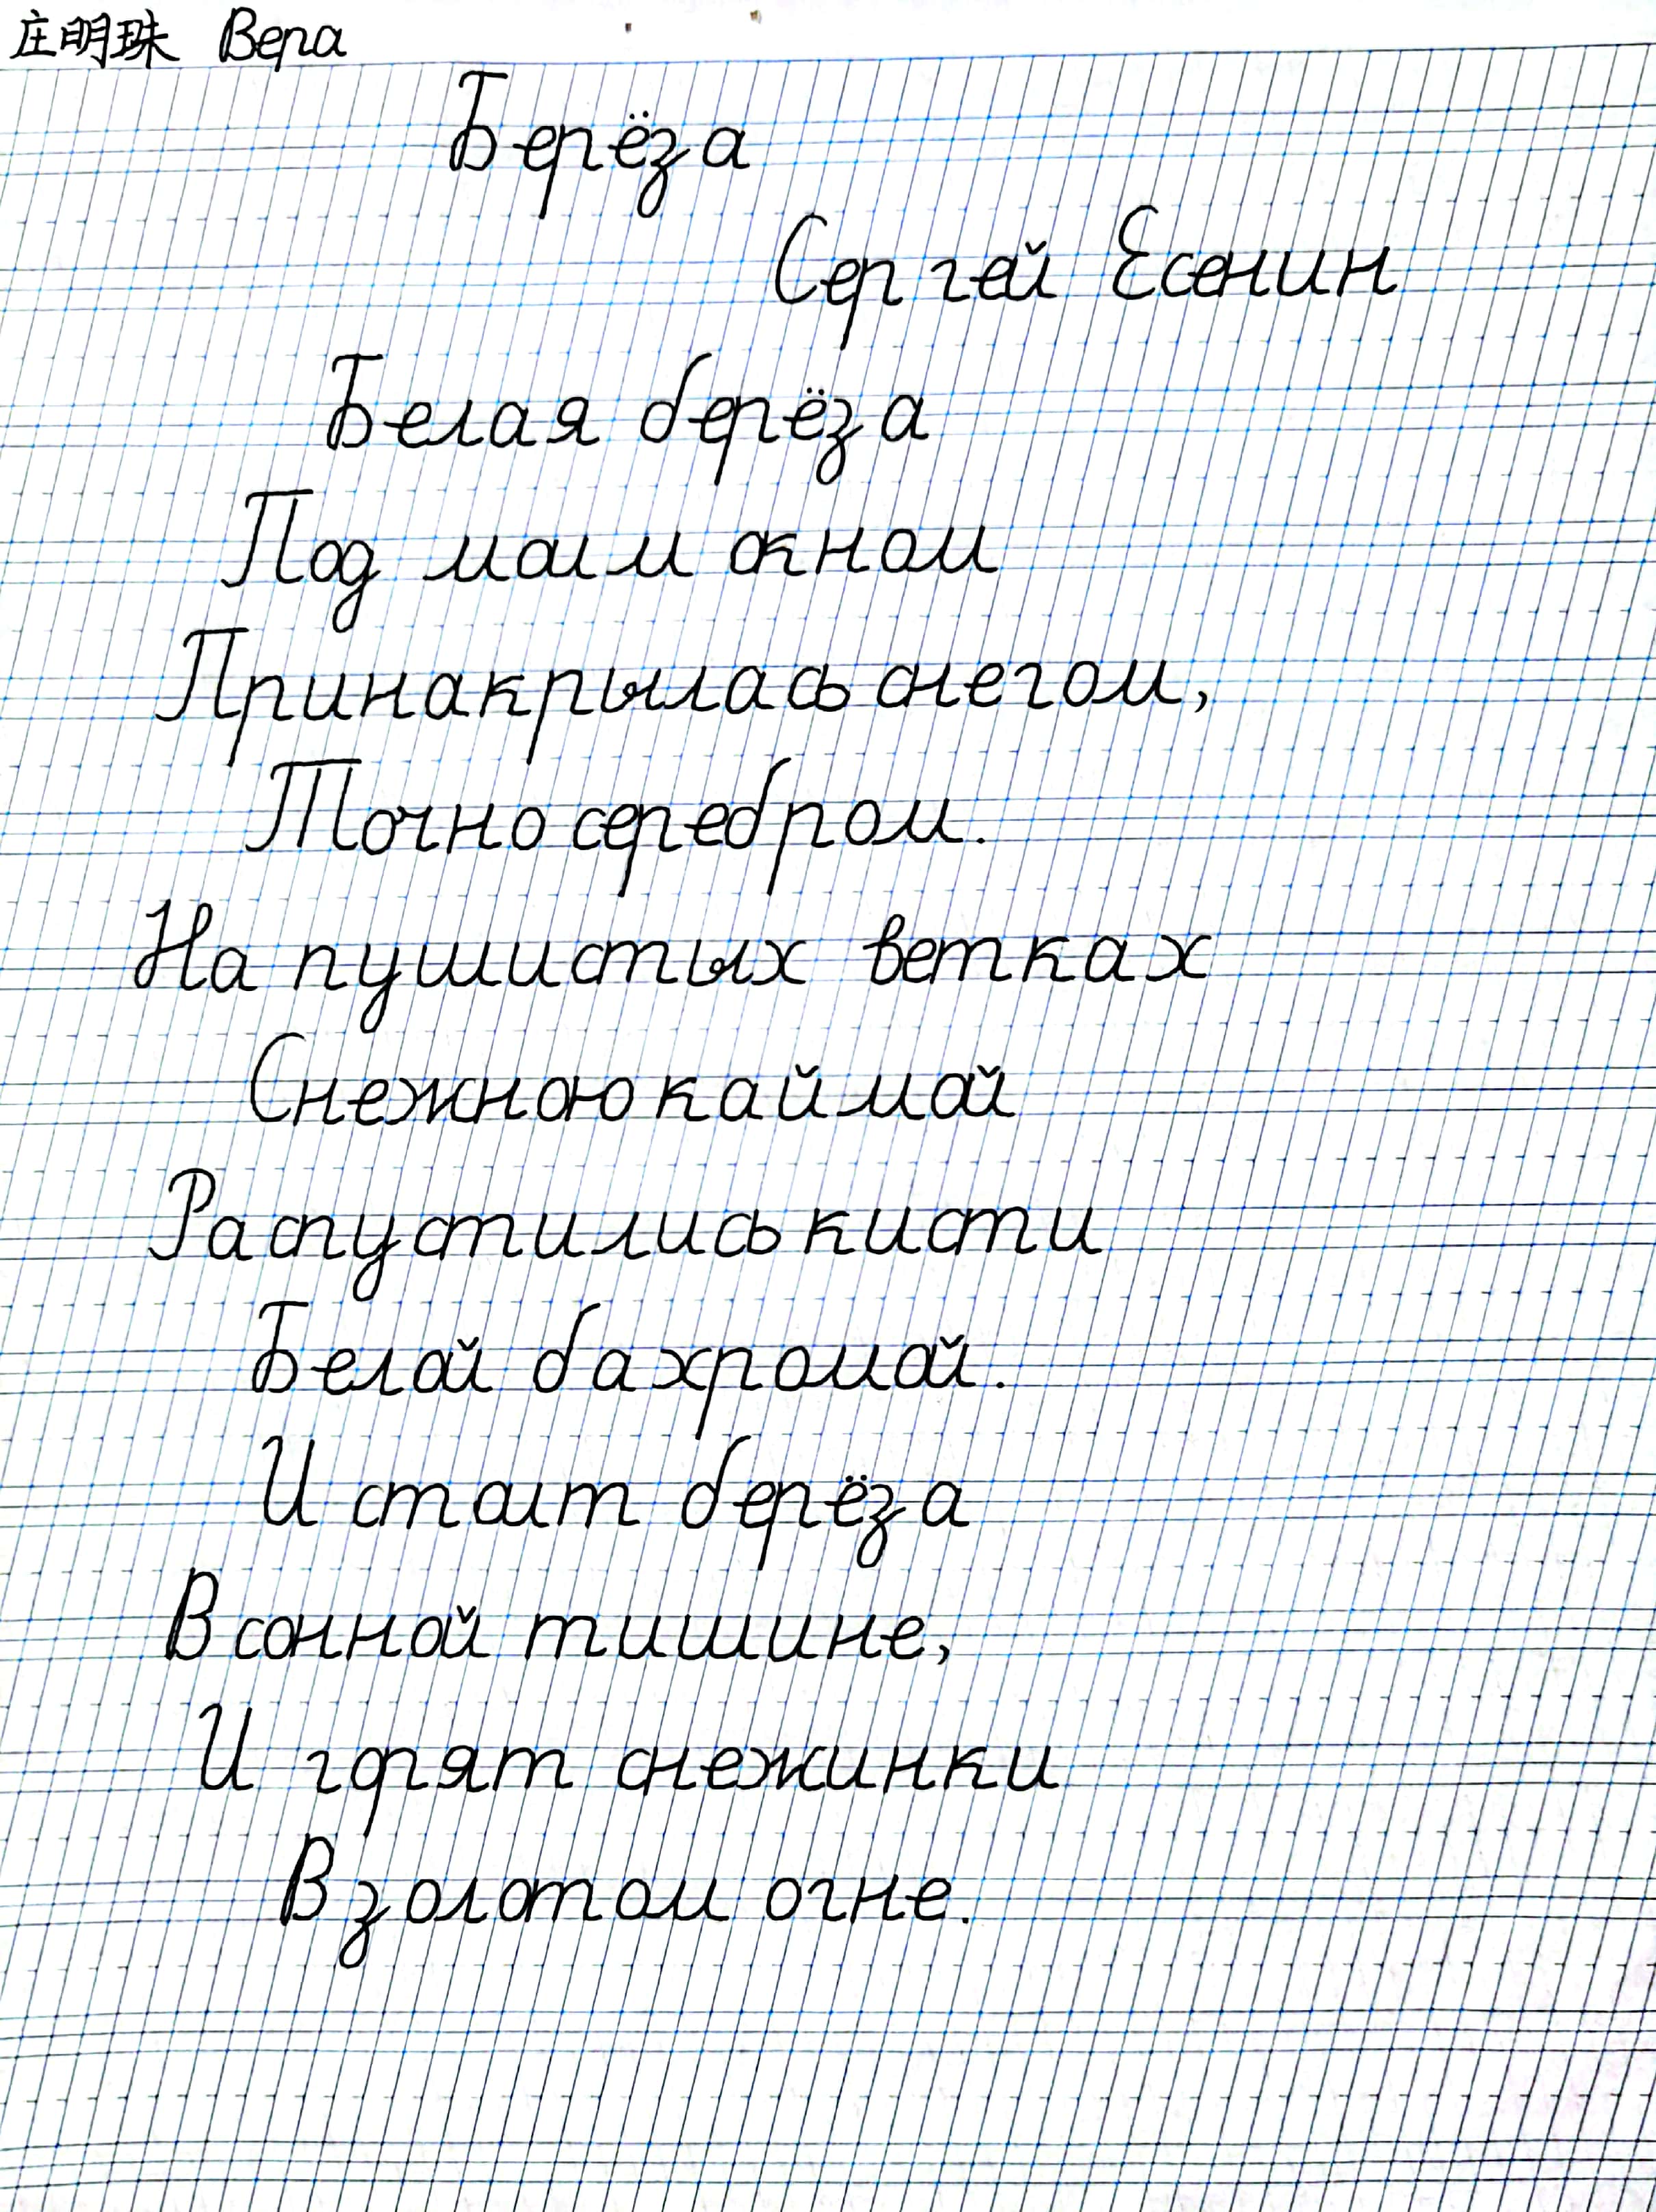 庄明珠 Вера
Берёза
Сергей Есенин
Белая берёза
Под моим окном
Принакрылась снегом,
Точно серебром.
На пушистых ветках
Снежною каймой
Распустились кисти
Белой бахромой.
И стоит берёза
В сонной тишине,
И горят снежинки
В золотом огне.